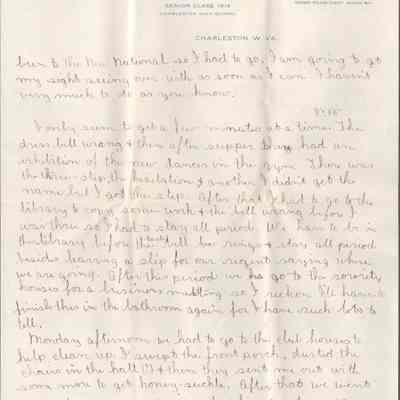 SENIOR CLASS 1914
CHARLESTON HIGH SCHOOL
CHARLESTON W. VA.
been to the New National so I had to go. I am going to get
my sight seeing over with as soon as I can. I haven't
very much to do as you know.
I only seem to get a few minutes at a time. The
dress bell wrang & then after supper they had an
exhibition of the new dances in the gym. There was
the three step, the hesitation & another I didn't get the
name but I got the step. After that I had to go to the
library to copy some work & the bell wrang before I
was thru so I had to stay all period. We have to be in
the library before the last bell rings & stay all period
besides leaving a slip for our regent saying where
we are going. After this period we go to the sorority
houses for a business meeting so I reckon I'll have to
finish this in the bathroom again for I have such lots to
tell.
Monday afternoon we had to go to the club houses to
help clean up. I swept the front porch, dusted the
chairs in the hall (?) & then they sent me out with
some more to get honey-suckle. After that we went